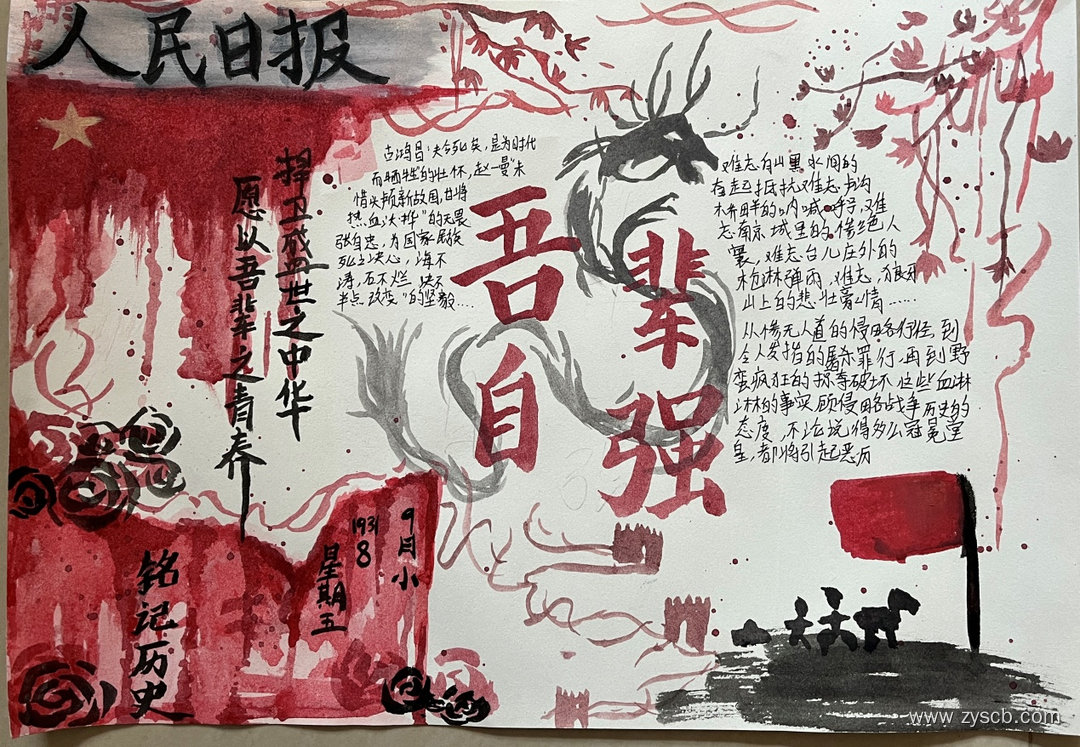 人民日报
捍卫盛世之中华
愿以吾辈之青春
古鸿昌“夫今死矣，是为时代
而牺牲”的壮怀，赵一曼“未
惜头颅新故国，甘将
热血沃中华”的无畏
张自忠，为国家民族
死之决心，海不
清，石不烂，决不
半点改变”的坚毅...
吾辈
自强
难忘白山黑水间的
奋起抵抗难忘
桥畔的呐喊
忘南京城里的
难忘台儿庄外的
枪林弹雨，难忘，狼牙
山上的悲壮豪情……
从惨无人道的侵略行径，到
令人发指的屠杀罪行，再到野
蛮疯狂的掠夺破坏 这些血淋
淋的事实 顾侵略战争历史的
态度，不论说得多么冠冕堂
皇，都将引起恶历
9月小
1931
8
星期五
铭记历史
www.zyscb.com